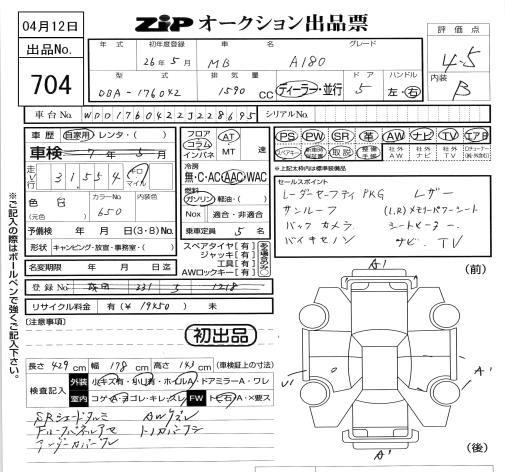 04月12日
ZIP オークション出品票
出品No.
704
評価点
4.5
内装
B
年式 初年度登録 車名 グレード
26年5月 MB A180
型式 排気量 ドア ハンドル
DBA-176042 1590 CC ディーラー・並行 5 左・右
車台No. WDD1760422J228695 シリアルNo.
車歴 自家用・レンタ・( )
車検 7年 5月
走行 31,554 キロ マイル
色 白 カラーNo. 650 内装色
(元色)
予備検 年 月 日(3・8)No.
形状 キャンピング・放宣・事務室・( )
名変期限 年 月 日迄
登録No. 331 5 1218
リサイクル料金 有(¥19250) 無
フロア コラム インパネ AT・MT 速
冷房
無・C・AC・AAC・WAC
燃料
ガソリン・軽油・( )
Nox 適合・非適合
乗車定員 5 名
スペアタイヤ[有]
ジャッキ[有]
工具[有]
AWロックキー[有]
PS PW SR 革 AW ナビ TV エアB
取説 社外AW 社外ナビ 社外TV
*上記太枠内は標準装備品
セールスポイント
レーダーセーフティPKG レザー
サンルーフ (L,R)メモリパワーシート
バックカメラ シートヒーター
バイキセノン ナビ TV
※ご記入の際はボールペンで強くご記入下さい。
[注意事項]
初出品
長さ 429 cm 幅 178 cm 高さ 143 cm (車検証上の寸法)
検査記入 外装 小キズ有・小凹有・ホイルA・ドアミラーA・ワレ
室内 コゲA・ヨゴレ・キレ・スレ FW トビ石・A・×要ス
AWキズレ
(前)
A1
A1
A1
(後)